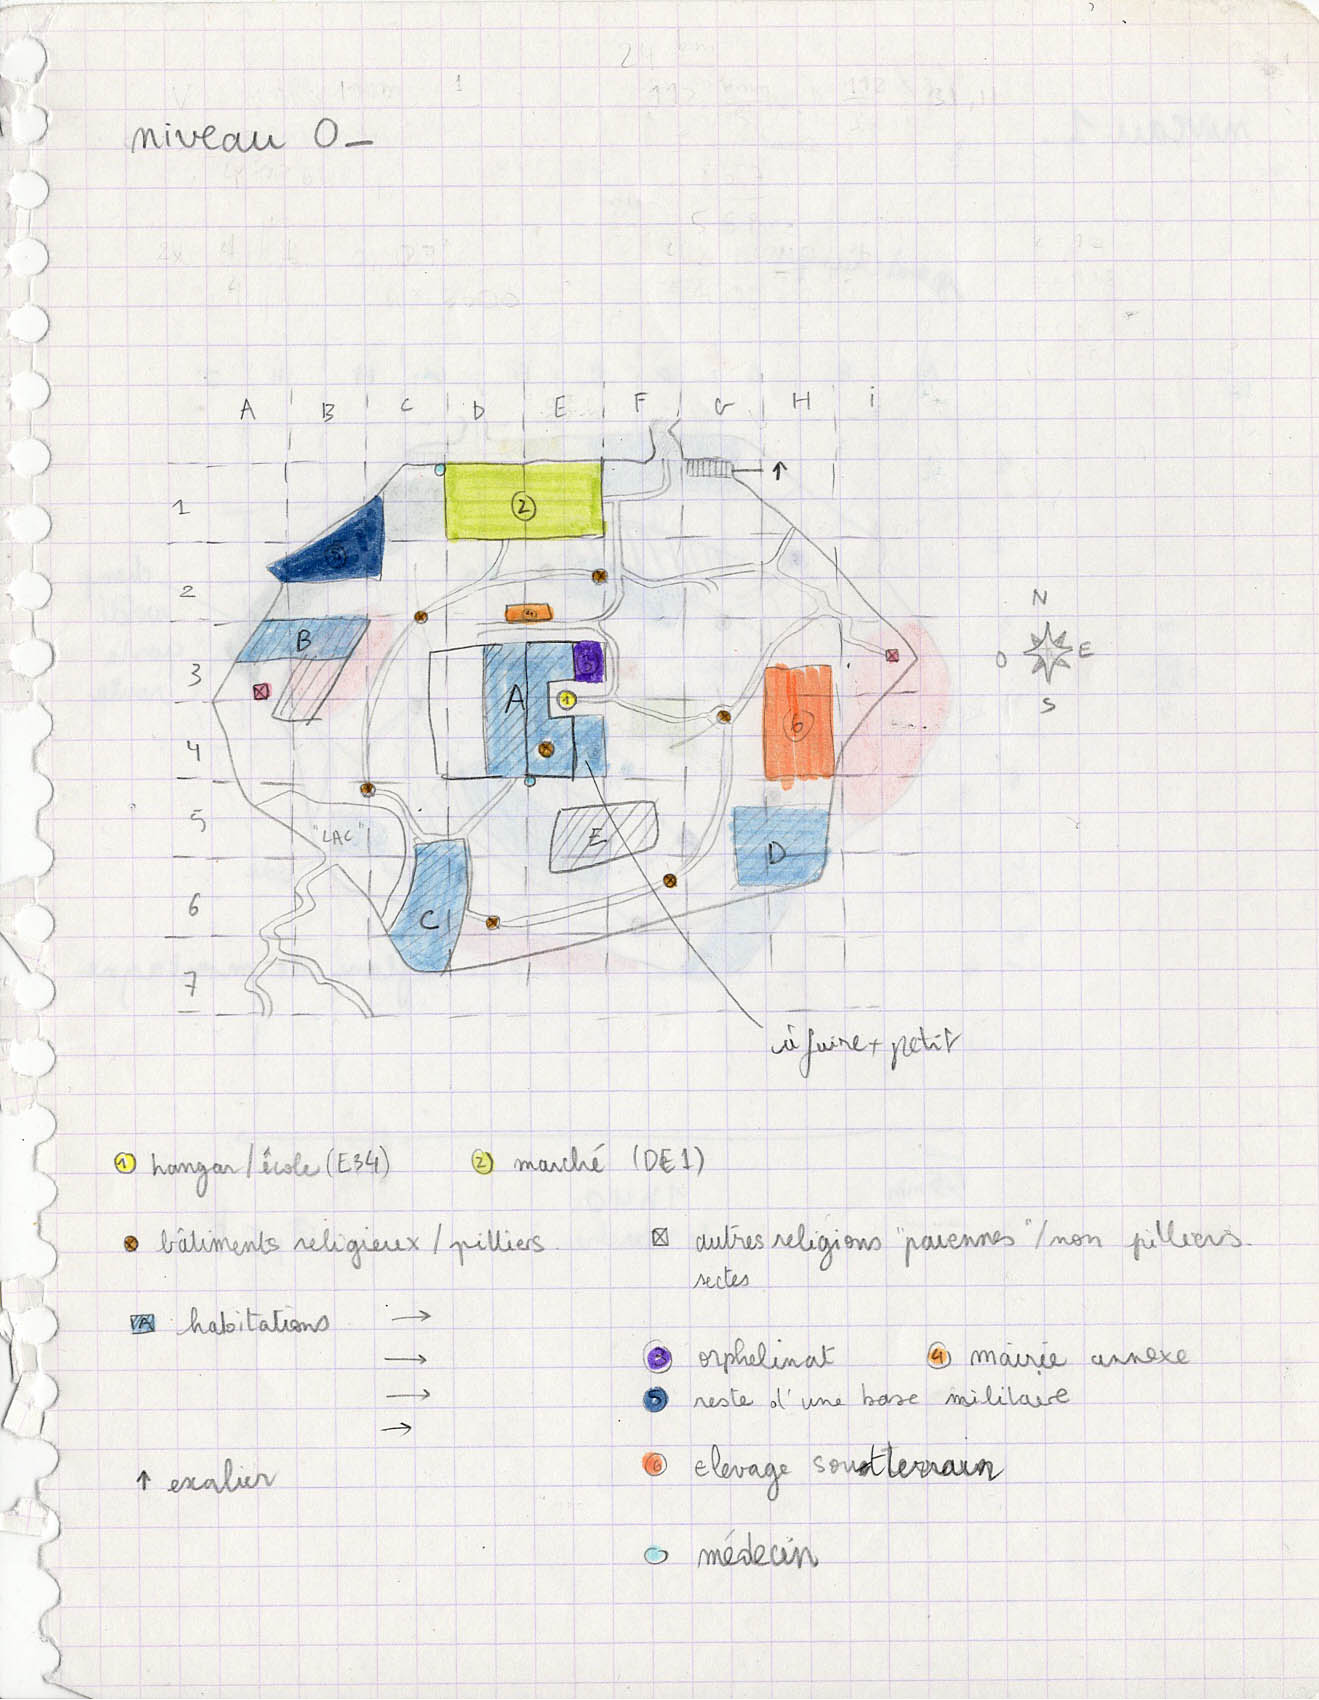 niveau 0_
A B C D E F G H i
1
2
3
4
5
6
7
↑
2
5
4
B
3
A
1
6
"LAC"
E
D
C
N
O E
S
à faire + petit
1 hangar/école (E34) 2 marché (DE1)
bâtiments religieux / pilliers autres religions "paiennes" / non pilliers
sectes
A habitations →
→
→
→
3 orphelinat 4 mairie annexe
5 reste d'une base militaire
6 Elevage soutterrain
↑ escalier
médecin